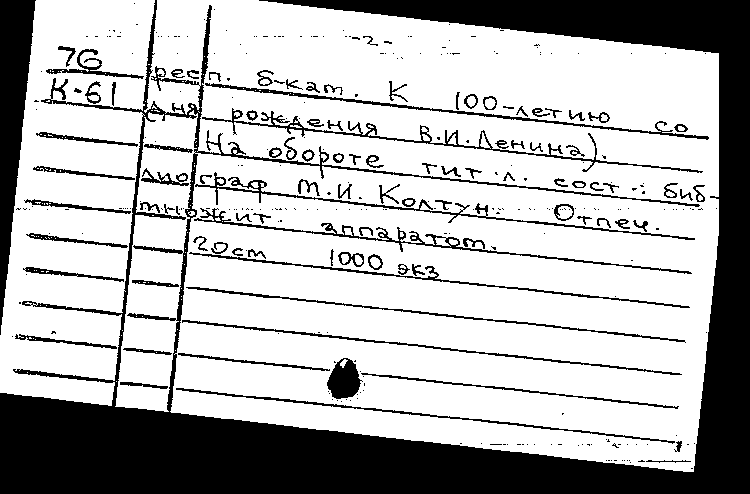 -2-
7G
респ. б-кат. К 100-летию со
К-61
дня рождения В.И.Ленина).
На обороте тит.л. сост.: биб-
лиограф М.И. Колтун. Отпеч.
множит. аппаратом.
20cm 1000 экз